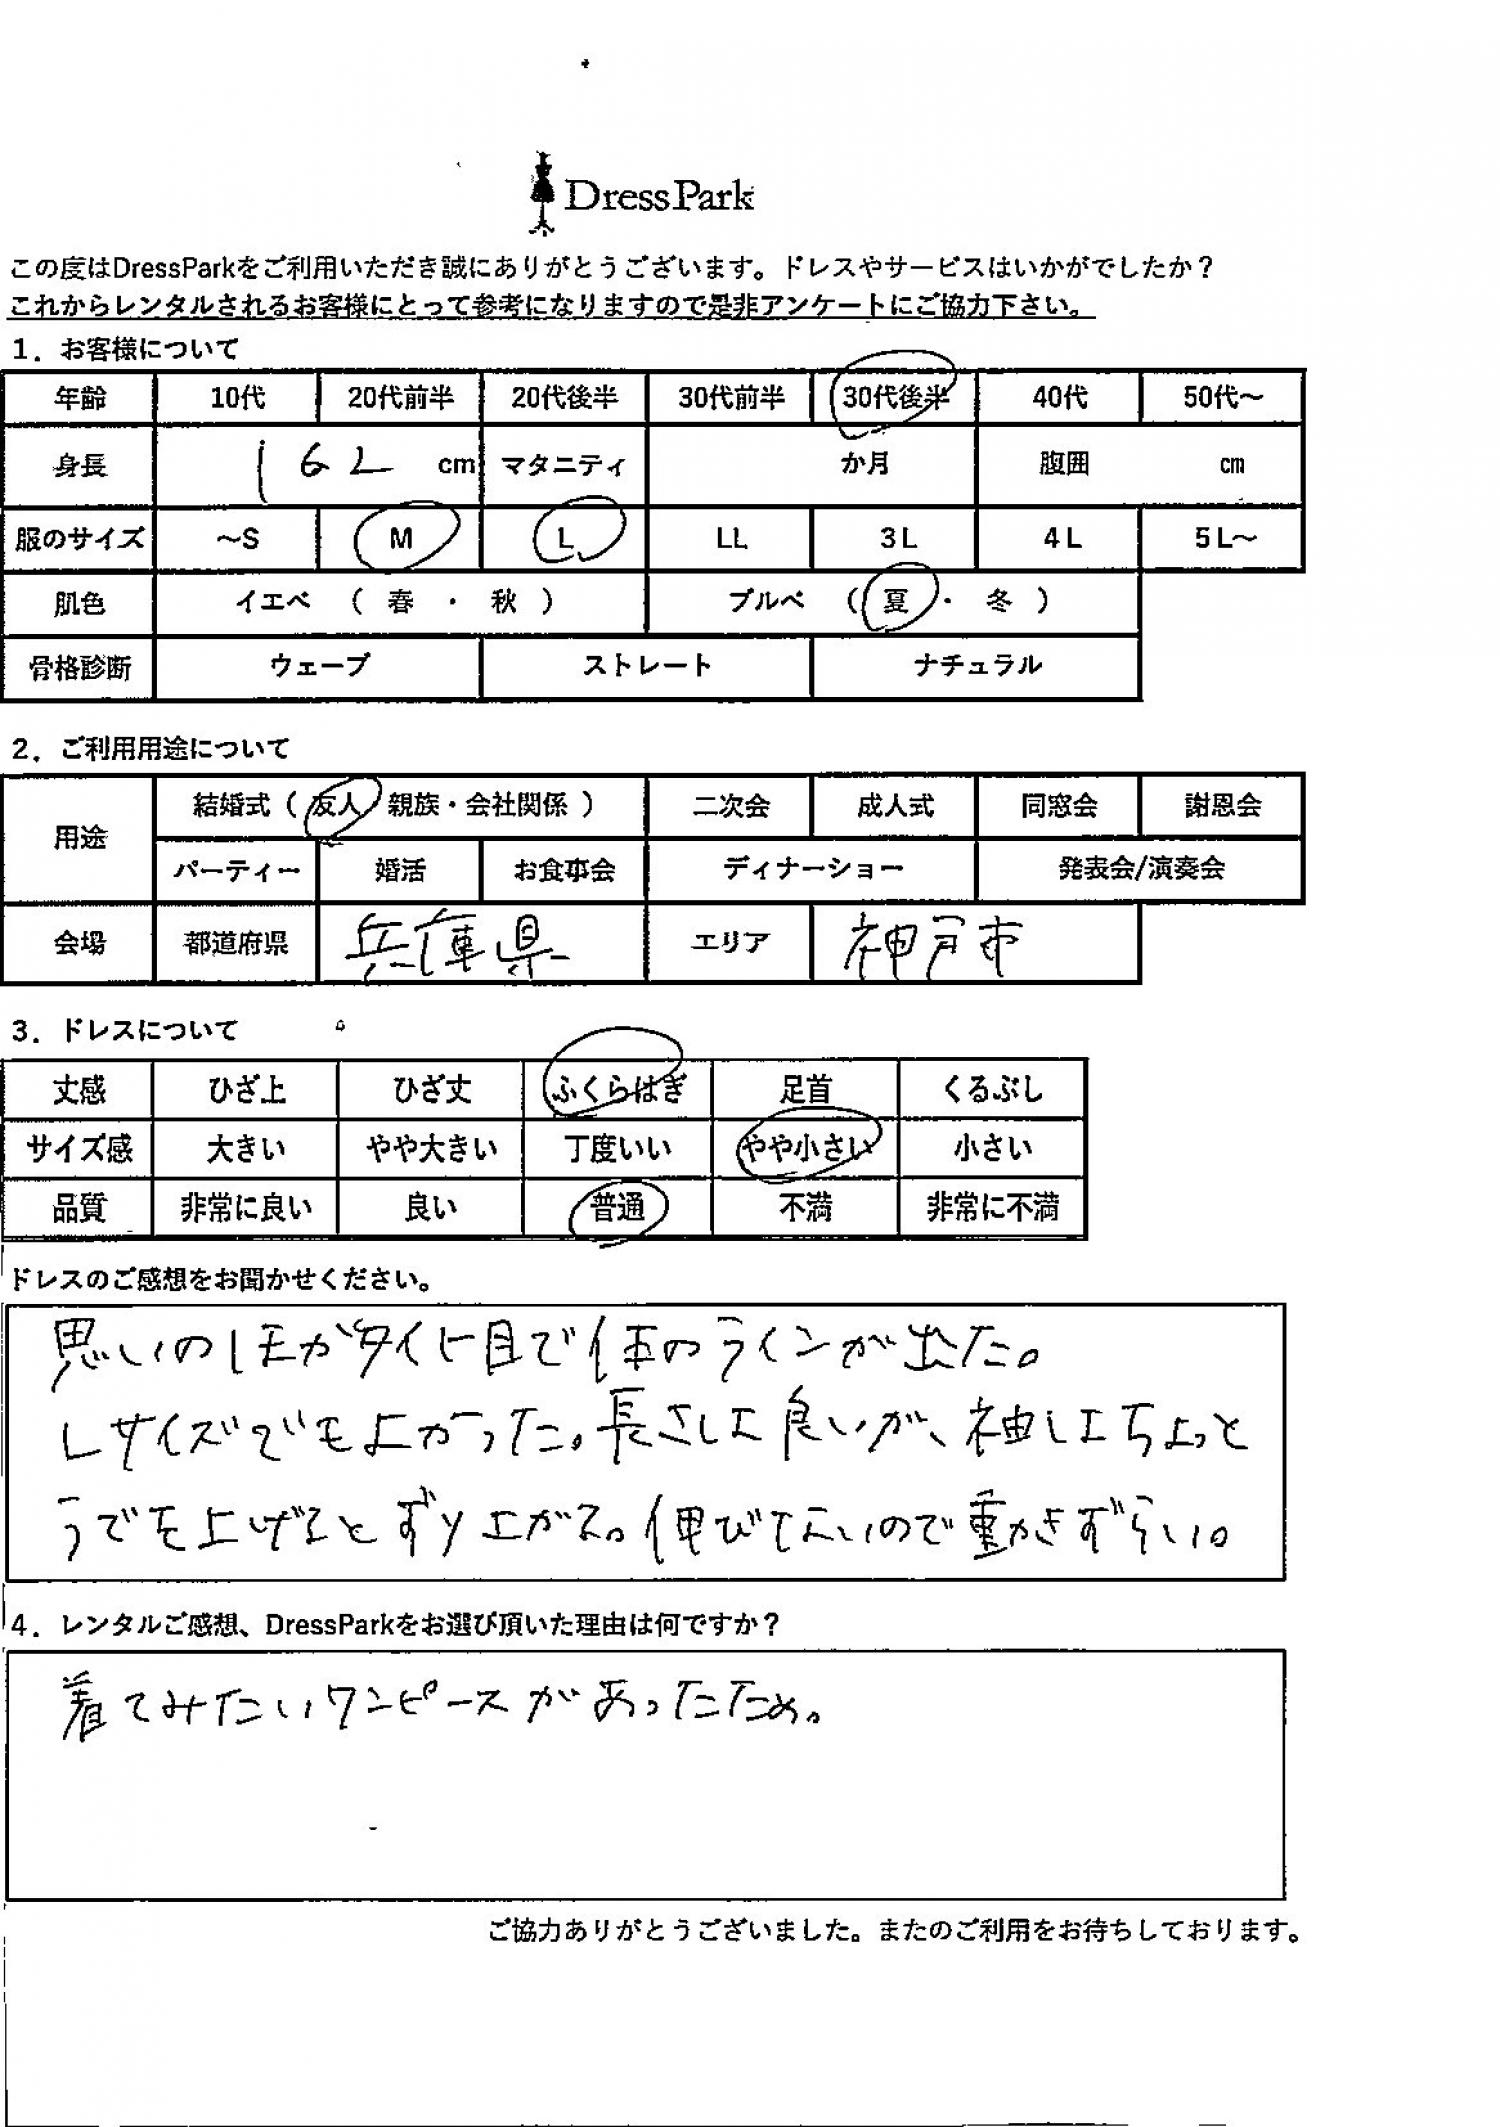 DressPark
この度はDressParkをご利用いただき誠にありがとうございます。ドレスやサービスはいかがでしたか？
これからレンタルされるお客様にとって参考になりますので是非アンケートにご協力下さい。
1．お客様について
年齢 10代 20代前半 20代後半 30代前半 30代後半 40代 50代～
身長 162 cm マタニティ か月 腹囲 cm
服のサイズ ～S M L LL 3L 4L 5L～
肌色 イエベ （ 春 ・ 秋 ） ブルベ （ 夏 ・ 冬 ）
骨格診断 ウェーブ ストレート ナチュラル
2．ご利用用途について
用途 結婚式（ 友人・親族・会社関係 ） 二次会 成人式 同窓会 謝恩会
パーティー 婚活 お食事会 ディナーショー 発表会/演奏会
会場 都道府県 兵庫県 エリア 神戸市
3．ドレスについて
丈感 ひざ上 ひざ丈 ふくらはぎ 足首 くるぶし
サイズ感 大きい やや大きい 丁度いい やや小さい 小さい
品質 非常に良い 良い 普通 不満 非常に不満
ドレスのご感想をお聞かせください。
思いのほかタイト目で体のラインが出た。
Lサイズでもよかった。長さは良いが、袖はちょっと
うでを上げるとずり上がる。伸びてないので動きずらい。
4．レンタルご感想、DressParkをお選び頂いた理由は何ですか？
着てみたいワンピースがあったため。
ご協力ありがとうございました。またのご利用をお待ちしております。